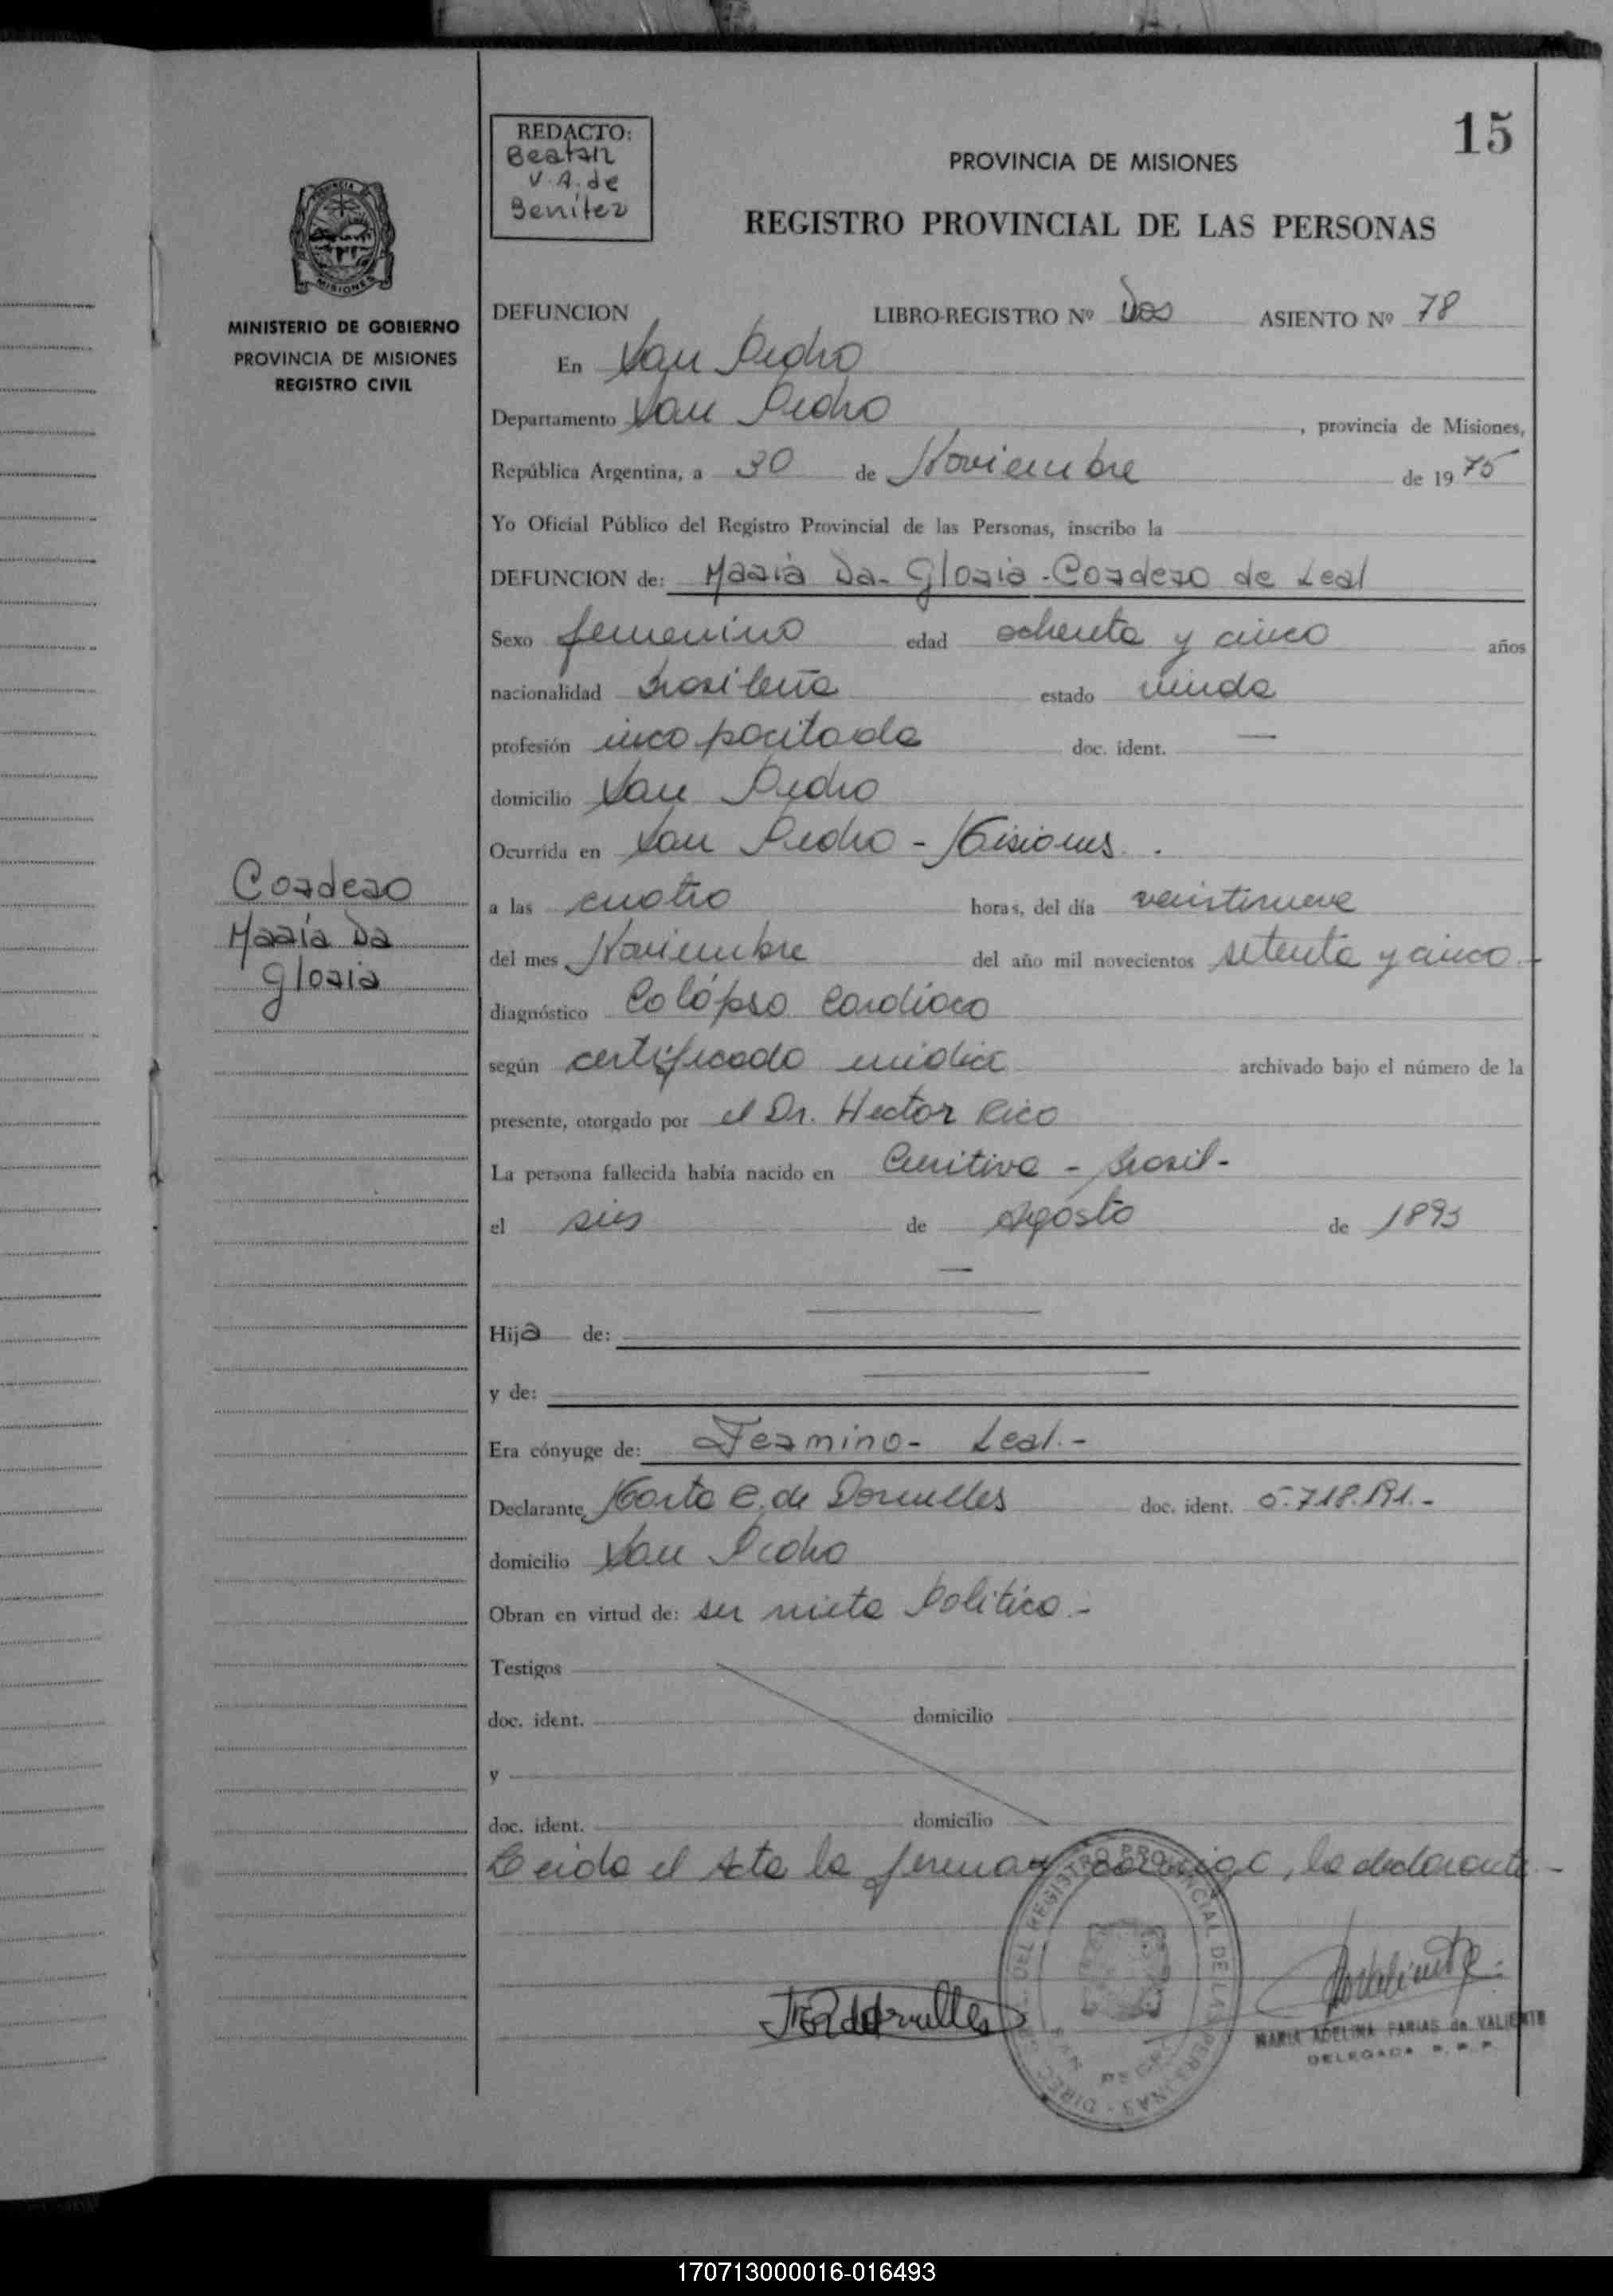 15
REDACTO:
Beatriz
V. A. de
Benítez
PROVINCIA DE MISIONES
REGISTRO PROVINCIAL DE LAS PERSONAS
MISIONES
MINISTERIO DE GOBIERNO
PROVINCIA DE MISIONES
REGISTRO CIVIL
Cordero
María Da
Gloria
DEFUNCION LIBRO-REGISTRO Nº Dos ASIENTO Nº 78
En San Pedro
Departamento San Pedro , provincia de Misiones,
República Argentina, a 30 de Noviembre de 1975
Yo Oficial Público del Registro Provincial de las Personas, inscribo la
DEFUNCION de: María Da- Gloria - Cordero de Leal
Sexo femenino edad ochenta y cinco años
nacionalidad Brasileña estado viuda
profesión incapacitada doc. ident. —
domicilio San Pedro
Ocurrida en San Pedro - Misiones.
a las cuatro horas, del día veintinueve
del mes Noviembre del año mil novecientos setenta y cinco -
diagnóstico Colápso Cardíaco
según certificado médico archivado bajo el número de la
presente, otorgado por el Dr. Hector Rico
La persona fallecida había nacido en Curitiva - Brasil -
el seis de Agosto de 1893
Hija de:
y de:
Era cónyuge de: Fermino - Leal. -
Declarante Marta C. de Dornelles doc. ident. 5.718.191. -
domicilio San Pedro
Obran en virtud de: ser nieta Política. -
Testigos
doc. ident. domicilio
y
doc. ident. domicilio
Leida el Acta la firman conmigo, la declarante -
DIREC. GRAL. DEL REGISTRO PROVINCIAL DE LAS PERSONAS
SAN PEDRO
MARIA ADELINA FARIAS de VALIENTE
DELEGADA R. P. P.
170713000016-016493